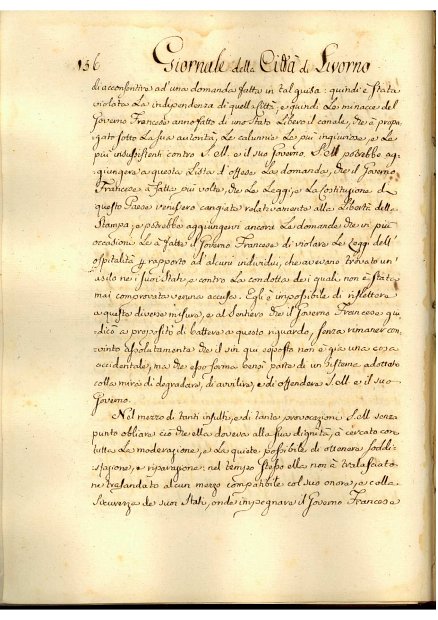 156 Giornale della Città di Livorno
di acconsentire ad una domanda fatta in tal guisa: quindi è stata
violata la indipendenza di quella Città, e quindi le minacce del
Governo Francese anno fatto di uno Stato Libero il canale, che à propa,
gato sotto la sua autorità, le calunnie le più ingiuriose, e le
più insussistenti contro S. M. e il suo Governo. S. M. potrebbe ag,
giungere a questa Lista d'offese la domanda, che il Governo
Francese à fatta più volte, che le Leggi, e la Costituzione di
questo Paese venissero cangiate relativamente alla Libertà della
Stampa, e potrebbe aggiungervi ancora le domande che in più
occasioni le à fatte il Governo Francese di violare le Leggi dell'
ospitalità per rapporto ad alcuni individui, che avevano trovato un'
asilo ne i suoi Stati, e contro la condotta dei quali non è stata
mai comprovata veruna accusa. Egli è impossibile di riflettere
a queste diverse misure, e al sentiero che il Governo Francese giu,
dicò a proposito di battere a questo riguardo, senza rimaner con,
vinto assolutamente che il sin qui esposto non è già una cosa
accidentale, ma che esso forma bensì parte di un sistema adottato
colla mira di degradare, di avvilire, e di offendere S. M. e il suo
Governo.
Nel mezzo di tanti insulti, e di tante provocazioni S. M. senza
punto obliare ciò che ella doveva alla sua dignità, à cercato con
tutta la moderazione, e la quiete possibile di ottenere soddi,
sfazione, e riparazione: nel tempo stesso ella non à tralasciato
ne trasandato alcun mezzo compatibile col suo onore, e colla
sicurezza de suoi Stati, onde impegnare il Governo Francese